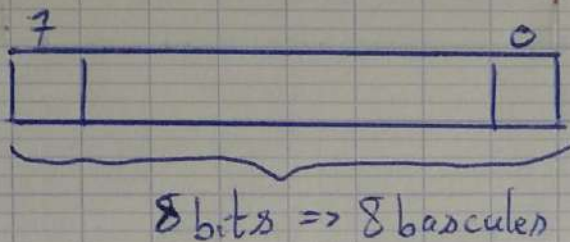 7 0
8 bits => 8 bascules